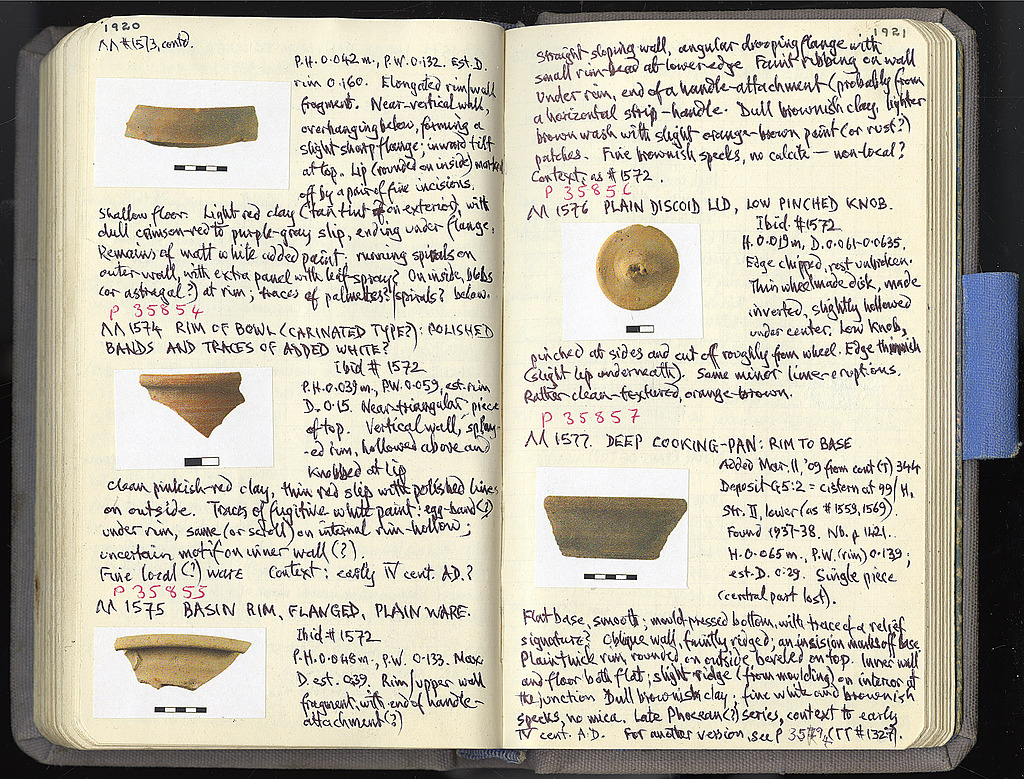 1920
ΛΛ #1573, contd.
P.H. 0.042 m., P.W. 0.132. Est. D.
rim 0.160. Elongated rim/wall
fragment. Near-vertical wall,
overhanging below, forming a
slight sharp flange; inward tilt
at top. Lip (rounded on inside) marked
off by a pair of fine incisions.
Shallow floor. Light red clay (tan tint on exterior), with
dull crimson-red to purple-gray slip, ending under flange.
Remains of matt white added paint; running spirals on
outer wall, with extra panel with leaf spray? On inside, blobs
(or astragal?) at rim; traces of palmettes? spirals? below.
P 35854
ΛΛ 1574 RIM OF BOWL (CARINATED TYPE?): POLISHED
BANDS AND TRACES OF ADDED WHITE?
Ibid # 1572
P.H. 0.039 m., P.W. 0.059, est. rim
D. 0.15. Near-triangular piece
of top. Vertical wall, splay-
-ed rim, hollowed above and
knobbed at lip
clean pinkish-red clay, thin red slip with polished lines
on outside. Traces of fugitive white paint: egg-band (?)
under rim, same (or scroll) on internal rim-hollow;
uncertain motif on inner wall (?).
Fine local (?) ware Context: early IV cent. A.D.?
P 35855
ΛΛ 1575 BASIN RIM, FLANGED, PLAIN WARE.
Ibid # 1572
P.H. 0.048 m., P.W. 0.133. Max.
D. est. 0.39. Rim/upper wall
fragment, with end of handle-
attachment (?)
1921
Straight sloping wall, angular drooping flange with
small rim-bead at lower edge Faint ribbing on wall
under rim, end of a handle-attachment (probably from
a horizontal strip-handle. Dull brownish clay, lighter
brown wash with slight orange-brown paint (or rust?)
patches. Fine brownish specks, no calcite — non-local?
Context, as # 1572.
P 35856
ΛΛ 1576 PLAIN DISCOID LID, LOW PINCHED KNOB.
Ibid. #1572
H. 0.019 m, D. 0.061-0.0635.
Edge chipped, rest unbroken.
Thin wheelmade disk, made
inverted, slightly hollowed
under center. Low knob,
pinched at sides and cut off roughly from wheel. Edge thinnish
(slight lip underneath). Some minor lime-eruptions.
Rather clean-textured, orange-brown.
P 35857
ΛΛ 1577. DEEP COOKING-PAN: RIM TO BASE
Added Mar. 11, '09 from cont (T) 344
Deposit G5:2 = cistern at 99/H,
Str. II, lower (as # 1559, 1569).
Found 1937-38. Nb. p 1421.
H. 0.065 m., P.W. (rim) 0.139;
est. D. 0.29. Single piece
(central part lost).
Flat base, smooth; mould-pressed bottom, with trace of a relief
signature? Oblique wall, faintly ridged; an incision marks off base
Plain thick rim, rounded on outside, beveled on top. Inner wall
and floor both flat; slight ridge (from moulding) on interior at
the junction Dull brownish clay; fine white and brownish
specks, no mica. Late Phocean (?) series, context to early
IV cent. A.D. For another version, see P (ΓΓ # 1327).